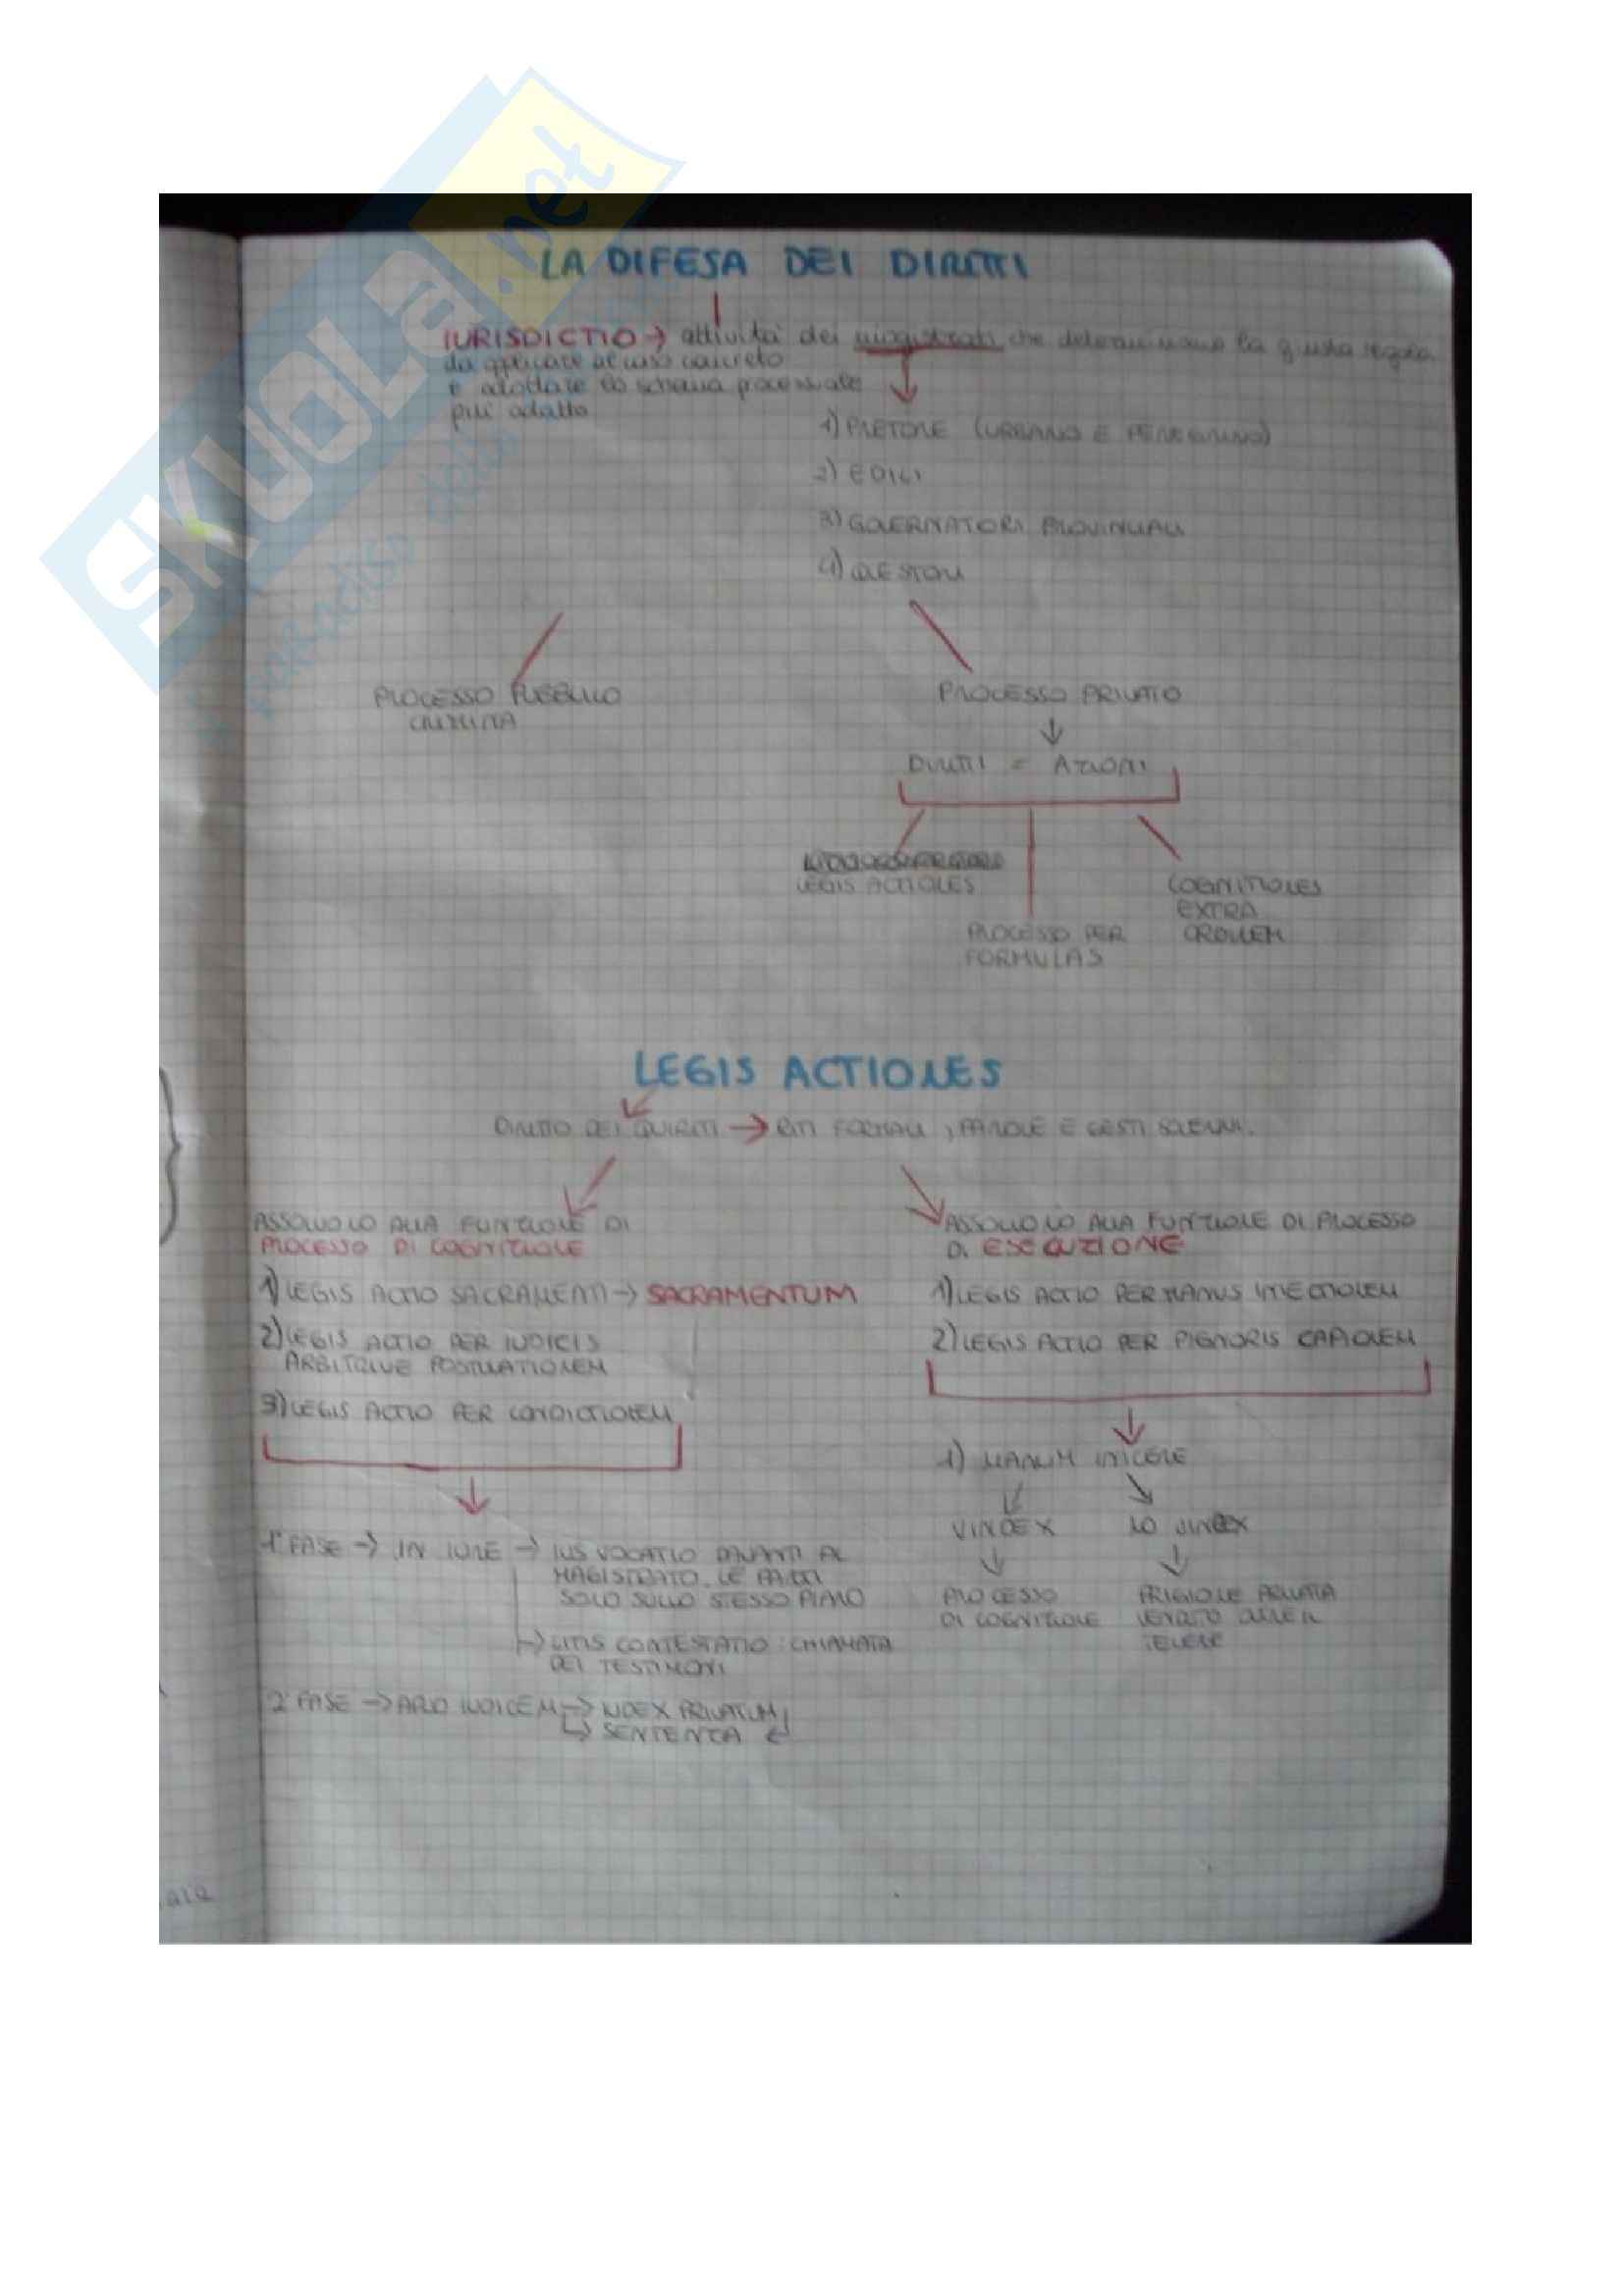 LA DIFESA DEI DIRITTI
IURISDICTIO → attività dei magistrati che determinano la giusta regola
da applicare al caso concreto
e adottare lo schema processuale
più adatto
1) PRETORE (URBANO E PEREGRINO)
2) EDILI
3) GOVERNATORI PROVINCIALI
4) QUESTORI
PROCESSO PUBBLICO
CRIMINA
PROCESSO PRIVATO
DIRITTI = AZIONI
LEGIS ACTIONES
PROCESSO PER
FORMULAS
COGNITIONES
EXTRA
ORDINEM
LEGIS ACTIONES
DIRITTO DEI QUIRITI → RITI FORMALI, PAROLE E GESTI SOLENNI.
ASSOLVONO ALLA FUNZIONE DI
PROCESSO DI COGNIZIONE
1) LEGIS ACTIO SACRAMENTI → SACRAMENTUM
2) LEGIS ACTIO PER IUDICIS
ARBITRIVE POSTULATIONEM
3) LEGIS ACTIO PER CONDICTIONEM
1ª FASE → IN IURE → IUS VOCATIO DAVANTI AL
MAGISTRATO. LE PARTI
SONO SULLO STESSO PIANO
→ LITIS CONTESTATIO: CHIAMATA
DEI TESTIMONI
2ª FASE → APUD IUDICEM → IUDEX PRIVATUM
→ SENTENTIA
ASSOLVONO ALLA FUNZIONE DI PROCESSO
DI ESECUZIONE
1) LEGIS ACTIO PER MANUS INIECTIONEM
2) LEGIS ACTIO PER PIGNORIS CAPIONEM
1) MANUM INICERE
VINDEX
PROCESSO
DI COGNIZIONE
NO VINDEX
PRIGIONE PRIVATA
TEVERE
SKUOLA.net
il paradiso dello
ale